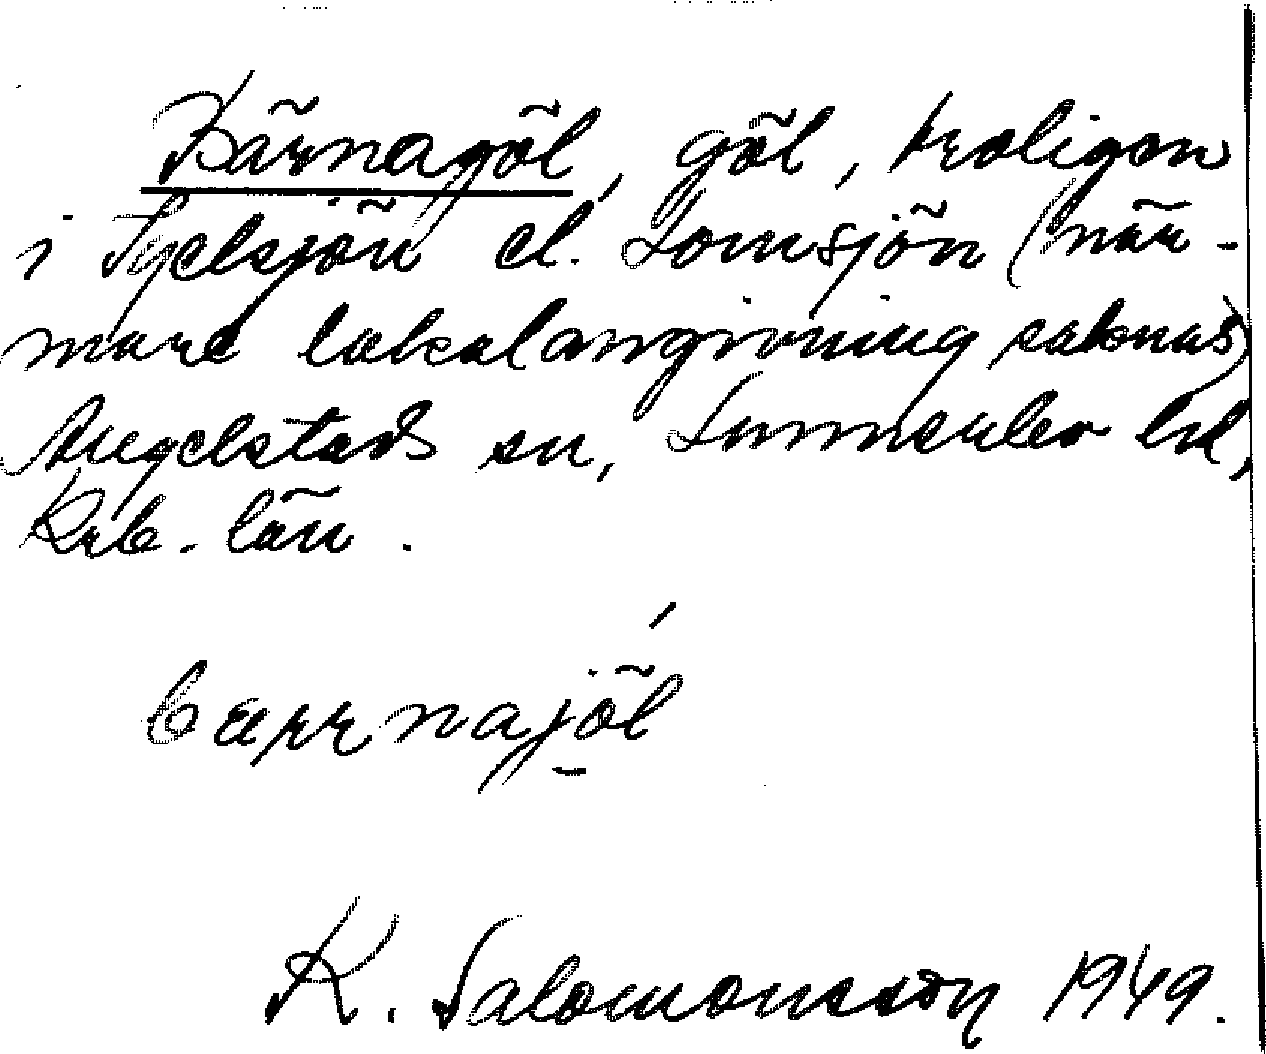 Bärnagöl, göl, troligen
i Tjelsjön el. Lomsjön (när-
mare lokalangivning saknas)
Angelstads sn, Sunnerbo hd,
Krb. län.
bærrnajöl
K. Salomonsson 1949.